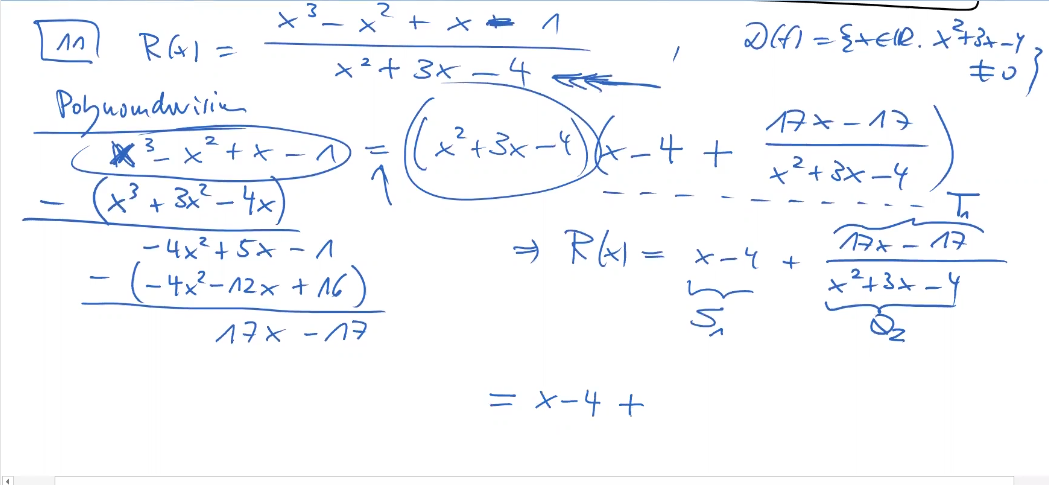 11 R(x) = (x³ - x² + x - 1) / (x² + 3x - 4) , D(f) = {x ∈ ℝ. x² + 3x - 4 ≠ 0}
Polynomdivision
x³ - x² + x - 1 = (x² + 3x - 4)(x - 4 + (17x - 17) / (x² + 3x - 4))
- (x³ + 3x² - 4x)
-4x² + 5x - 1
- (-4x² - 12x + 16)
17x - 17
⇒ R(x) = x - 4 + (17x - 17) / (x² + 3x - 4)
T₁
S₁
Q₂
= x - 4 +